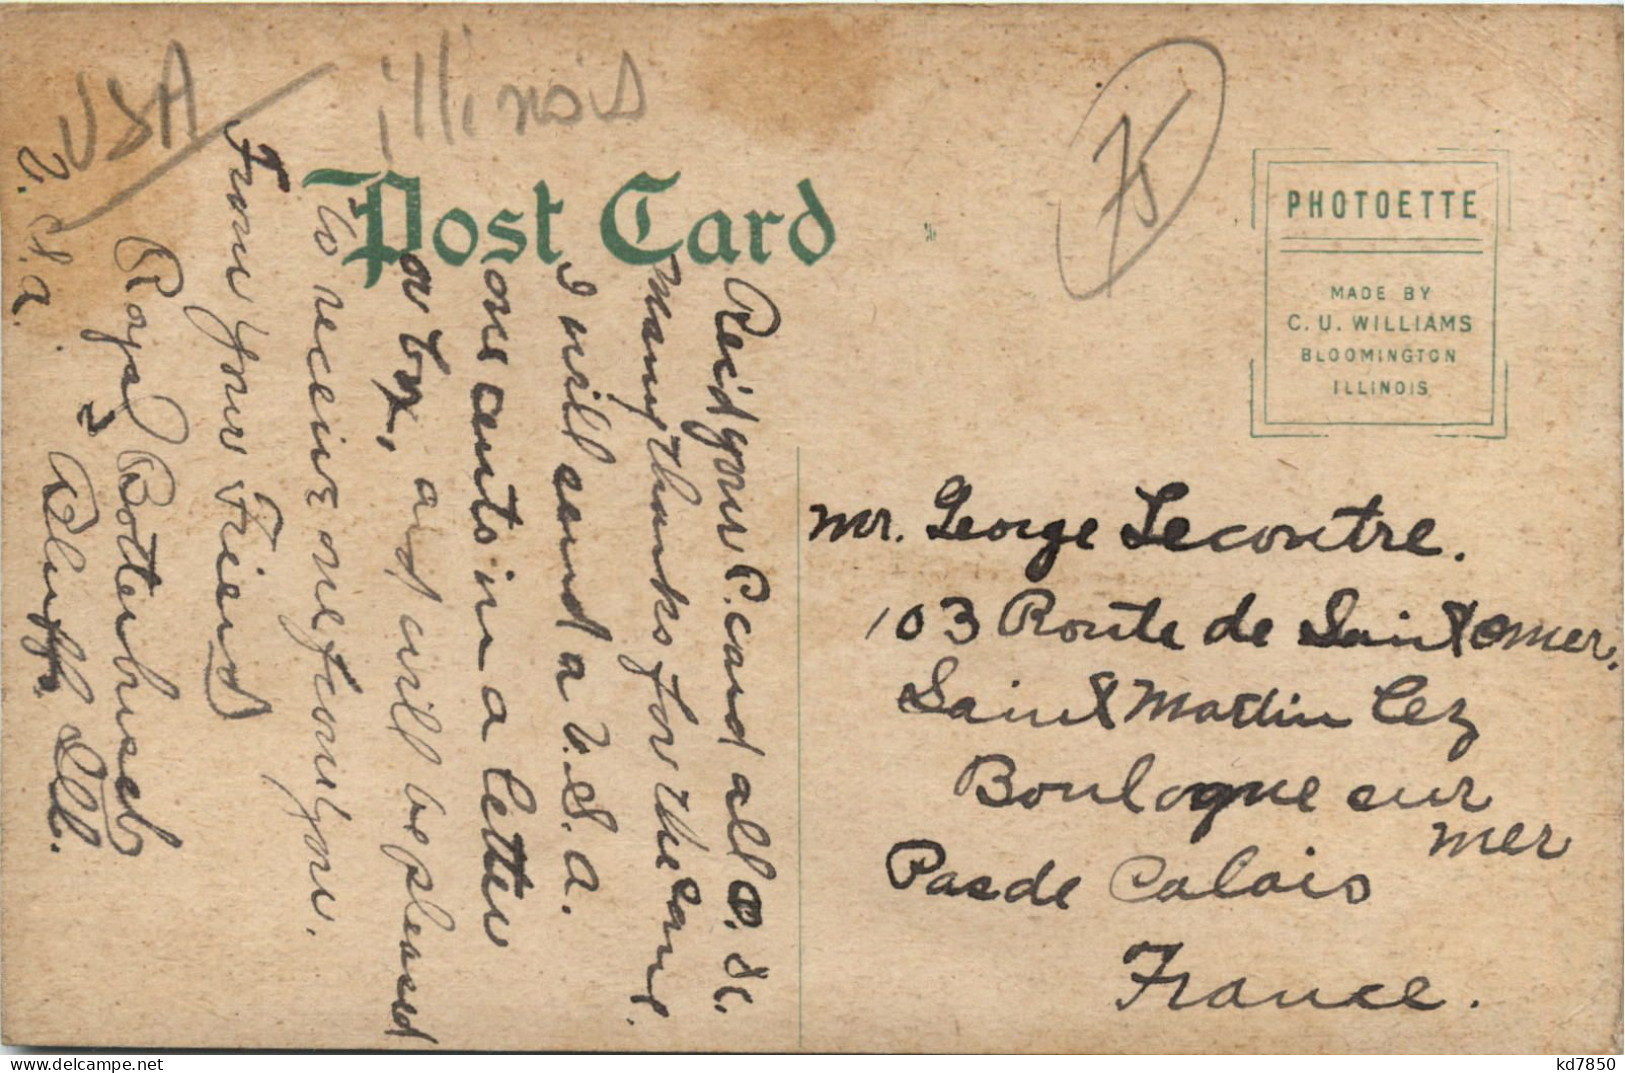 USA
illinois
75
Post Card
PHOTOETTE
MADE BY
C. U. WILLIAMS
BLOOMINGTON
ILLINOIS
Rec'd your P. card all O. K.
Many thanks for the same.
I will send a U. S. A.
one cents in a letter
or by, and will be pleased
to receive one from you.
From your Friend
Royal Botterbusch
Bluffs, Ill.
U. S. A.
Mr. George Lecoutre.
103 Route de Saint Omer,
Saint Martin Lez
Boulogne sur
mer
Pas de Calais
France.
kd7850